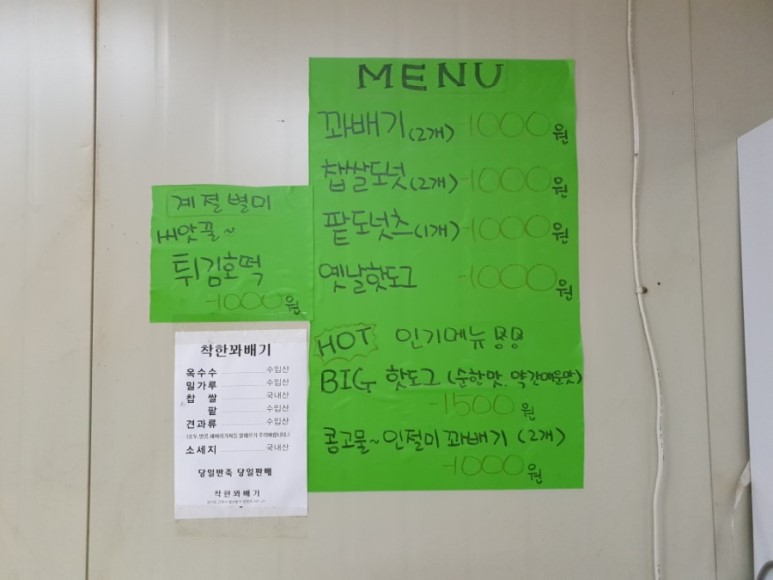 MENU
꽈배기(2개) -1000원
찹쌀도넛(2개) -1000원
팥도넛츠(1개) -1000원
옛날핫도그 -1000원
HOT 인기메뉴
BIG 핫도그 (순한맛, 약간매운맛)
-1500원
콩고물~인절미꽈배기(2개)
-1000원
계절별미
씨앗꿀~
튀김호떡
-1000원
착한꽈배기
옥수수 수입산
밀가루 수입산
찹쌀 국내산
팥 수입산
견과류 수입산
소세지 국내산
당일반죽 당일판매
착한꽈배기